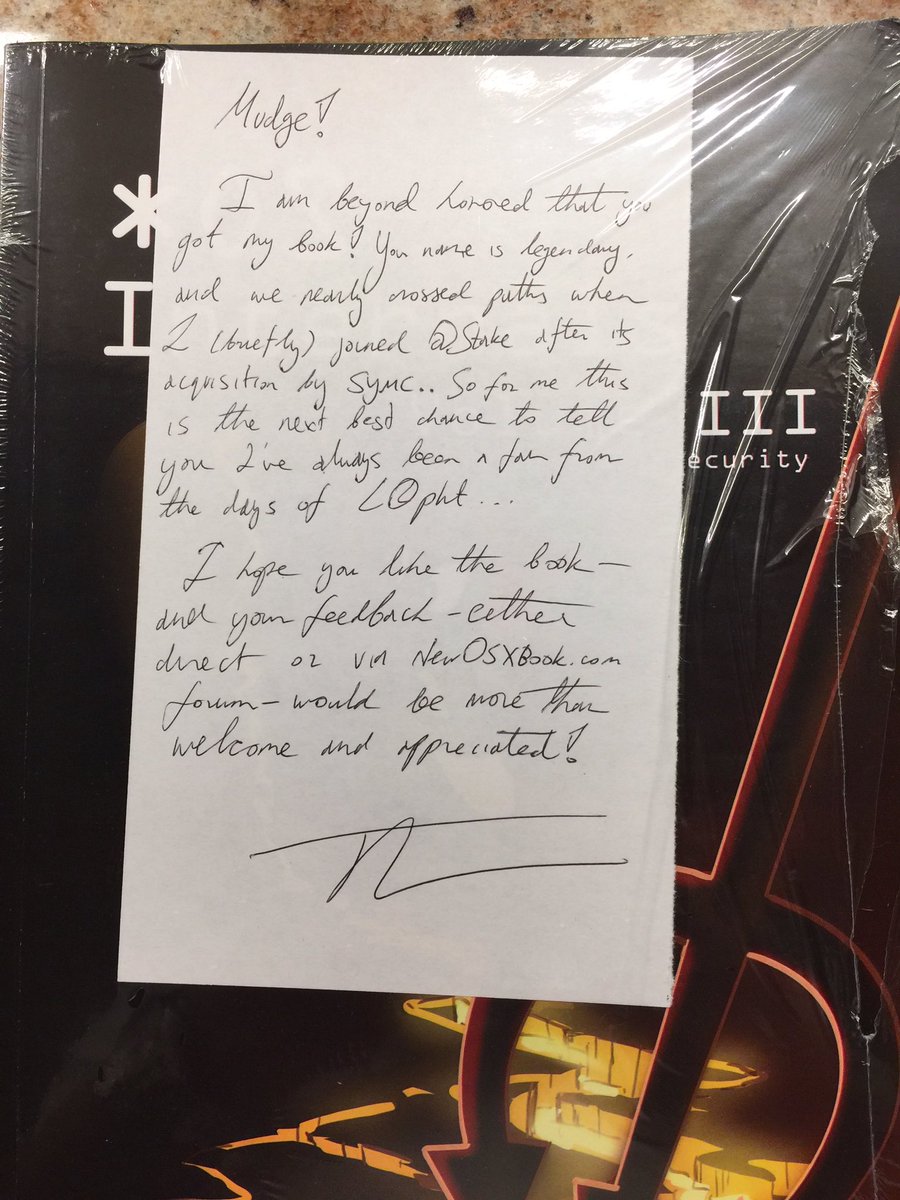 Mudge!
I am beyond honored that you
got my book! You name is legendary,
and we nearly crossed paths when
I (briefly) joined @Stake after its
acquisition by SYMC.. So for me this
is the next best chance to tell
you I've always been a fan from
the days of L@pht...
I hope you like the book –
and your feedback – either
direct or via NewOSXBook.com
forum – would be more than
welcome and appreciated!
*
I
III
ecurity